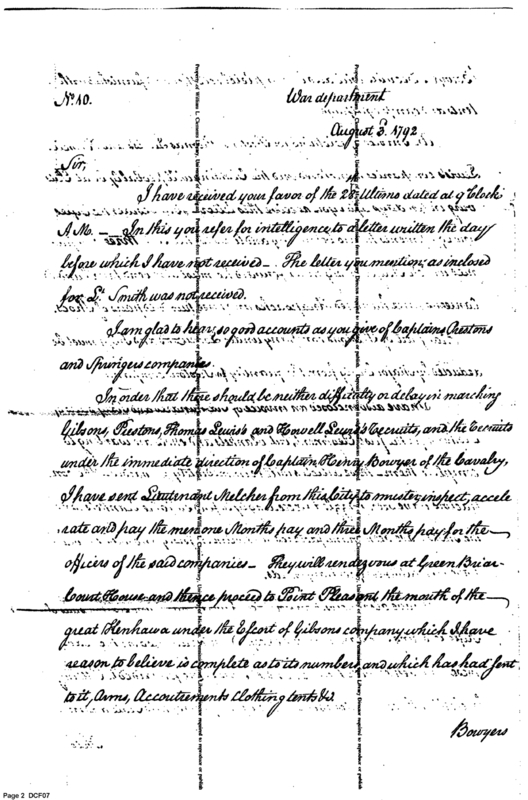 No. 10.
War department
August 3d. 1792
Sir,
I have received your favor of the 28th Ultimo dated at 9 Clock
A.M. — In this you refer for intelligence to a letter written the day
before which I have not received — The letter you mention, as inclosed
for Lt. Smith was not received.
I am glad to hear, so good accounts as you give of Captains Prestons
and Springers companies.
In order that there should be neither difficulty or delay in marching
Gibsons, Prestons, Thomas Lewis's and Howell Lewis's Recruits, and the Recruits
under the immediate direction of Captain Henry Bowyer of the Cavalry,
I have sent Lieutenant Melcher from this City to muster, inspect, accele
rate and pay the men one Months pay and three Months pay for the
officers of the said companies — They will rendezvous at Green Briar
Court House and thence proceed to Point Pleasant the mouth of the
great Kenhawa under the Escort of Gibsons company which I have
reason to believe is complete as to its numbers, and which has had sent
to it, Arms, Accoutrements Clothing tents &c.
Bowyers
Page 2 DCF07